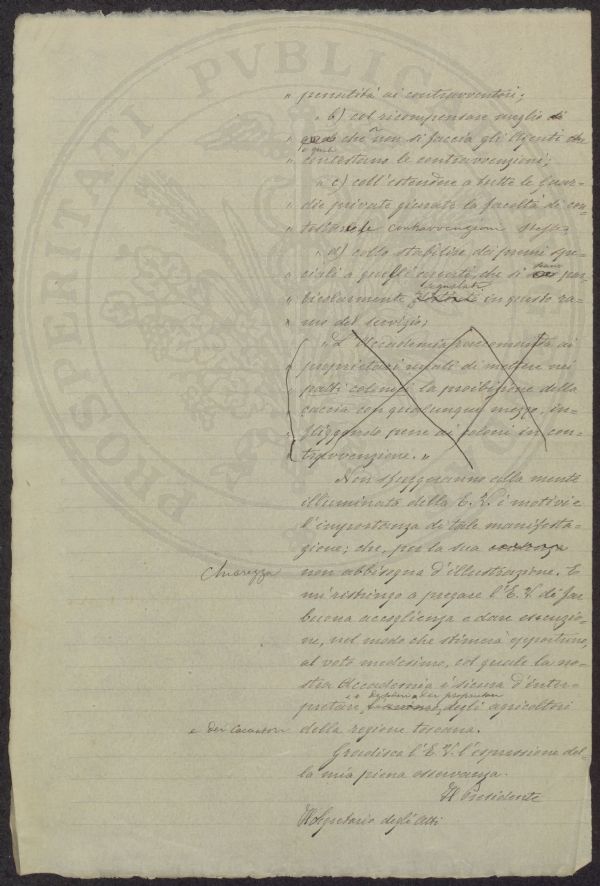 " penalità ai contravventori;
" b) col ricompensare meglio di
" che non si faccia gli Agenti che
" contestano le contravvenzioni;
" c) coll'estendere a tutte le Guar-
" die private giurate la facoltà di con-
" testare le contravvenzioni stesse
" d) collo stabilire dei premi spe-
" ciali a quelli agenti, che si siano par-
" ticolarmente segnalati in questo ra-
" mo del servizio;
" L'Accademia raccomanda ai
" proprietari rurali di mettere nei
" patti colonici la proibizione della
" caccia con qualunque mezzo, in-
" fliggendo pene ai coloni in con-
" travvenzione. "
Non sfuggiranno alla mente
illuminata della E. V. i motivi e
l'importanza di tale manifesta-
zione; che, per la sua
chiarezza
non abbisogna d'illustrazione. E
mi restringo a pregare l'E. V. di far
buona accoglienza e dare esecuzio-
ne, nel modo che stimerà opportuno,
al voto medesimo, col quale la no-
stra Accademia è sicura d'inter-
pretare i desideri dei proprietari degli agricoltori
e dei Cacciatori
della regione toscana.
Gradisca l'E. V. l'espressione del-
la mia piena osservanza.
Il Presidente
Il Segretario degli Atti
PROSPERITATI PUBLIC